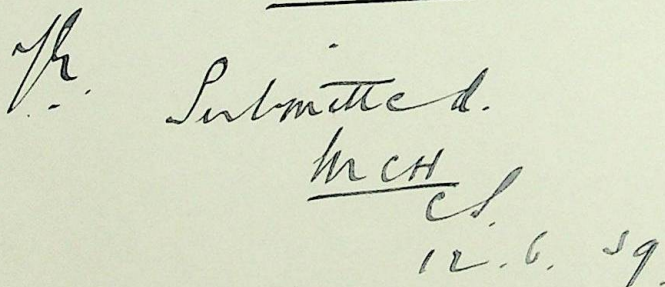 Submitted.
MCH
CS.
12.6.59